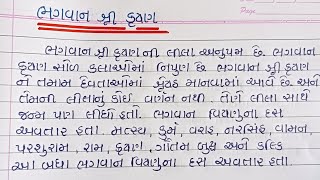 ભગવાન શ્રી કૃષ્ણ
ભગવાન શ્રી કૃષ્ણ ની લીલા અનુપમ છે. ભગવાન
કૃષ્ણ સોળ કલાઓમાં નિપુણ છે. ભગવાન શ્રી કૃષ્ણ
ને તમામ દેવતાઓમાં શ્રેષ્ઠ માનવામાં આવે છે. અને
તેમની લીલાનું કોઈ વર્ણન નથી. તેણે લીલા સાથે
જન્મ પણ લીધો હતો. ભગવાન વિષ્ણુના દસ
અવતાર હતા. મત્સ્ય, કુર્મ, વરાહ, નરસિંહ, વામન,
પરશુરામ, રામ, કૃષ્ણ, ગૌતમ બુદ્ધ અને કલ્કિ
આ બધા ભગવાન વિષ્ણુના દસ અવતાર હતા.